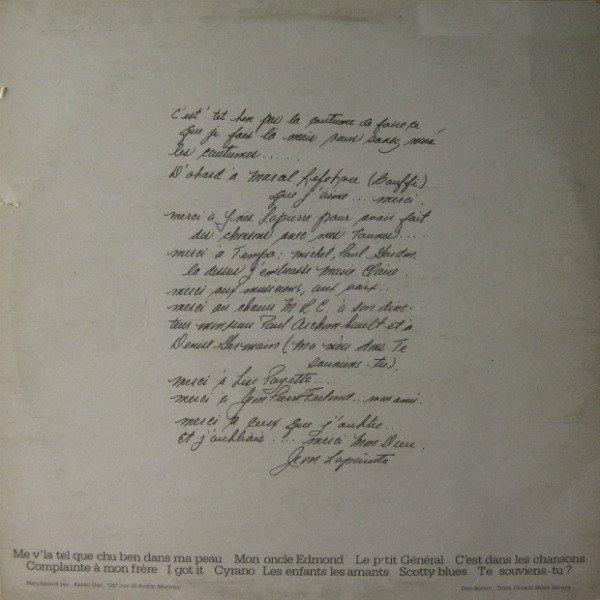 C'est 'tet ben pas la coutume de faire ce
que je fais là mais vous savez, moé
les coutumes.....
D'abord à Marcel Lefebvre (Bouffi)
que j'aime... merci.
merci à Yves Lapierre pour avoir fait
des chansons avec mes tounes....
merci à Tempo: michel, Paul
la dessus j'embrasse Marie Claire.
merci aux musiciens, aux voix...
merci au choeur M.L.C. à son direc-
teur monsieur Paul Archambault et à
Denise Germain (ma mère dans Te
souviens-tu).
merci à Lise Payette...
merci à Jean Pierre Ferland.. mon ami.
merci à ceux que j'oublie...
Et j'oubliais.... merci Mon Dieu.
Jean Lapointe
Me v'la tel que chu ben dans ma peau Mon oncle Edmond Le p'tit Général C'est dans les chansons
Complainte à mon frère I got it Cyrano Les enfants les amants Scotty blues Te souviens-tu?
Manufacturé par: Disc, rue St-André, Montréal Distribution: Trans Canada Music Service